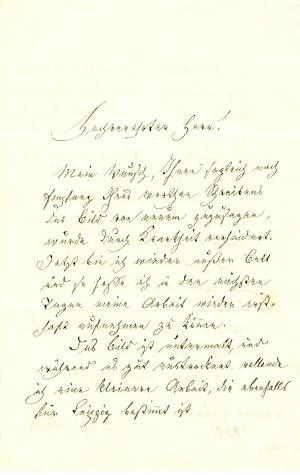 Hochverehrter Herr!
Mein Wunsch, Ihnen sogleich nach
Empfang Ihres werthen Schreibens
das Bild von neuem zuzusagen,
wurde durch Krankheit verhindert.
Jetzt bin ich wieder außer Bett
und so hoffe ich in den nächsten
Tagen meine Arbeit wieder ernst-
haft aufnehmen zu können.
Das Bild ist untermalt, und
während es gut austrocknet, vollende
ich eine kleinere Arbeit, die ebenfalls
für Leipzig bestimmt ist